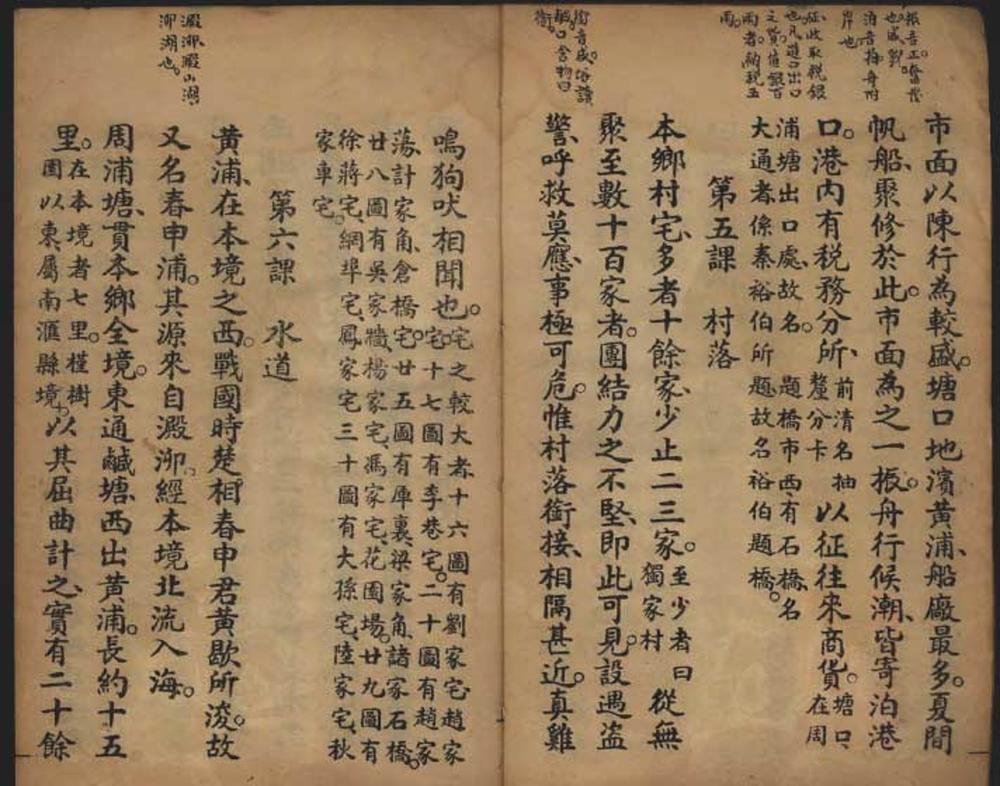 振音正奮發
也盛貌。
泊音拍舟附
岸也
征收取税銀
也凡進口出口
之貨值銀百
両者納税五
両。
銜音咸俗讀
啣口含物曰
銜。
市面以陳行為較盛。塘口地濱黃浦、船廠最多。夏間
帆船、聚修於此。市面為之一振。舟行候潮、皆寄泊港
口。港內有税務分所、前清名抽釐分卡以征往來商貨。塘口、在周
浦塘出口處、故名。題橋市西、有石橋、名
大通者係秦裕伯所題故名裕伯題橋。
第五課 村落
本鄉村宅、多者十餘家、少止二三家。至少者曰獨家村從無
聚至數十百家者。團結力之不堅、即此可見。設遇盜
警、呼救莫應、事極可危。惟村落銜接、相隔甚近。真雞
澱泖澱山湖
泖湖也。
鳴狗吠相聞也。宅之較大者、十六圖有劉家宅、趙家
宅、十七圖有李巷宅。二十圖有趙家
蕩、計家角、倉橋宅。廿五圖有庫裏、梁家角、諸家石橋。
廿八圖有吳家犧楊家宅、馮家宅、花園場。廿九圖有
徐蔣宅、網埠宅、鳳家宅三十圖有大孫宅、陸家宅、秋
家車宅。
第六課 水道
黃浦、在本境之西。戰國時楚相春申君黃歇所浚。故
又名春申浦。其源來自澱泖。經本境北流入海。
周浦塘、貫本鄉全境。東通鹹塘、西出黃浦。長約十五
里。在本境者七里。槿樹園以東、屬南滙縣境。以其屈曲計之、實有二十餘